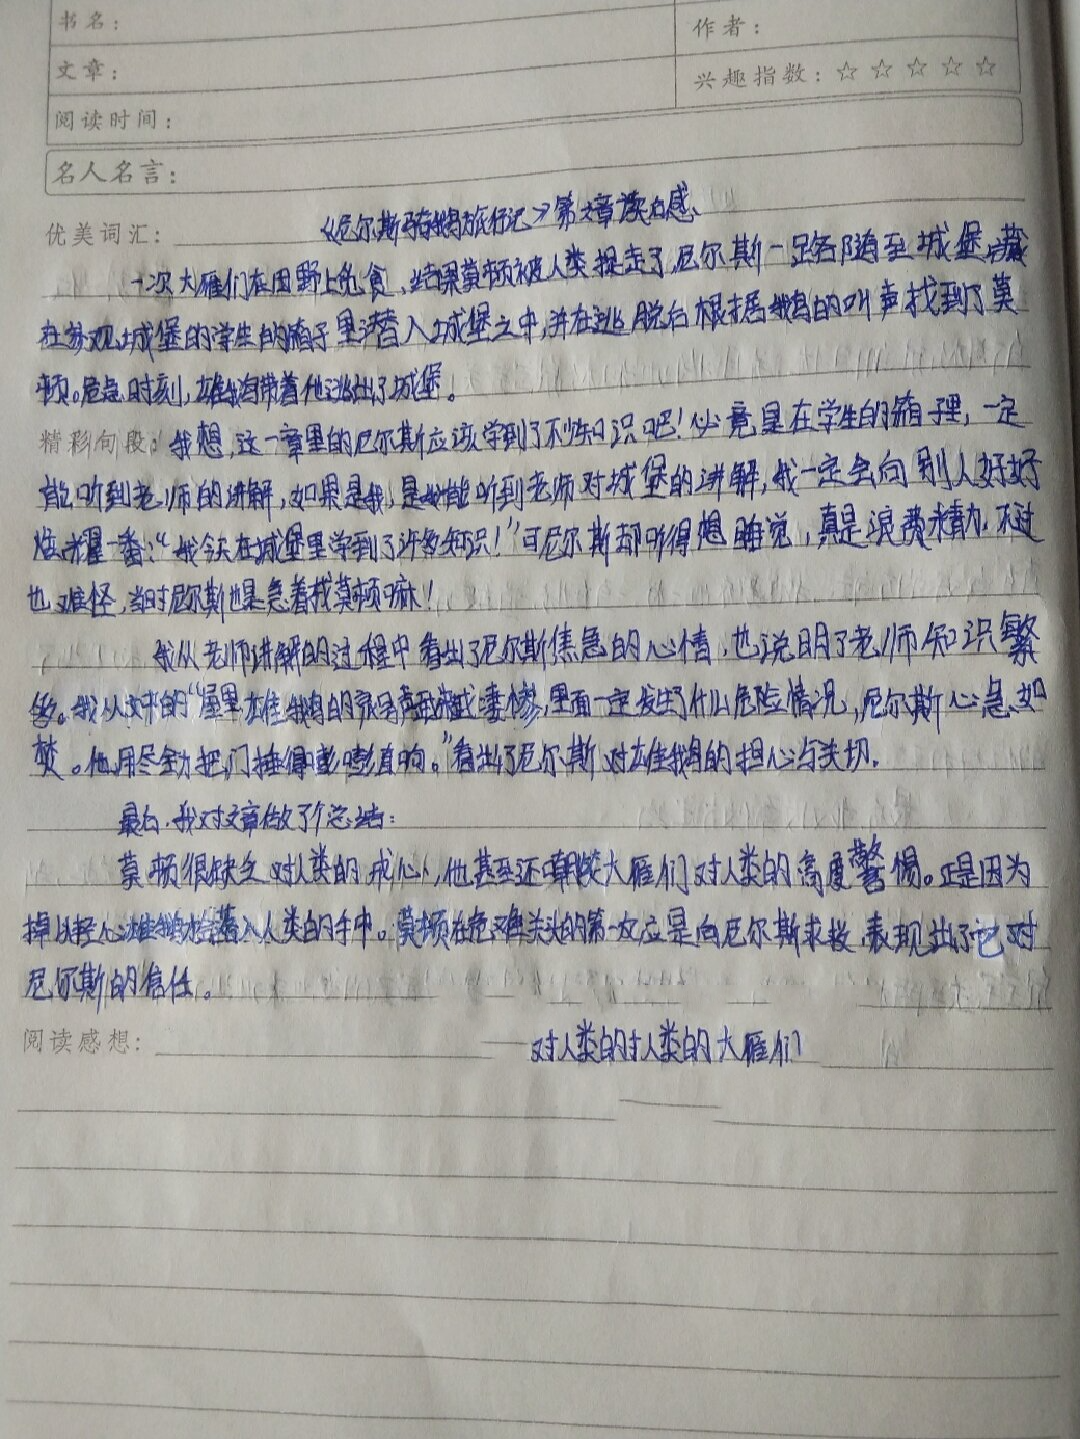 书名：
作者：
文章：
兴趣指数：☆☆☆☆☆
阅读时间：
名人名言：
优美词汇：
《尼尔斯骑鹅旅行记》第六章读后感
一次大雁们在田野上觅食，结果莫顿被人类捉走了，尼尔斯一路随至城堡，藏
在参观城堡的学生的箱子里潜入城堡之中，并在逃脱后根据鹅的叫声找到了莫
顿。危急时刻，雄鹅带着他逃出了城堡。
精彩句段：我想，这一章里的尼尔斯应该学到了不少知识吧！必竟是在学生的箱子里，一定
能听到老师的讲解，如果是我，是我能听到老师对城堡的讲解，我一定会向别人好好
炫耀一番：“我今天在城堡里学到了许多知识！”可尼尔斯却听得想睡觉，真是浪费精力。不过
也难怪，当时尼尔斯也是急着找莫顿嘛！
我从老师讲解的过程中看出了尼尔斯焦急的心情，也说明了老师知识繁
多。我从文中的“屋里雄鹅的哀号声越来越凄惨，里面一定发生了什么危险情况，尼尔斯心急如
焚。他用尽全力把门捶得嘭嘭直响。”看出了尼尔斯对雄鹅的担心与关切。
最后，我对文章做了个总结：
莫顿很缺乏对人类的戒心，他甚至还嘲笑大雁们对人类的高度警惕。正是因为
掉以轻心雄鹅才会落入人类的手中。莫顿在危难关头的第一反应是向尼尔斯求救，表现出了它对
尼尔斯的信任。
阅读感想：
对人类的对人类的大雁们